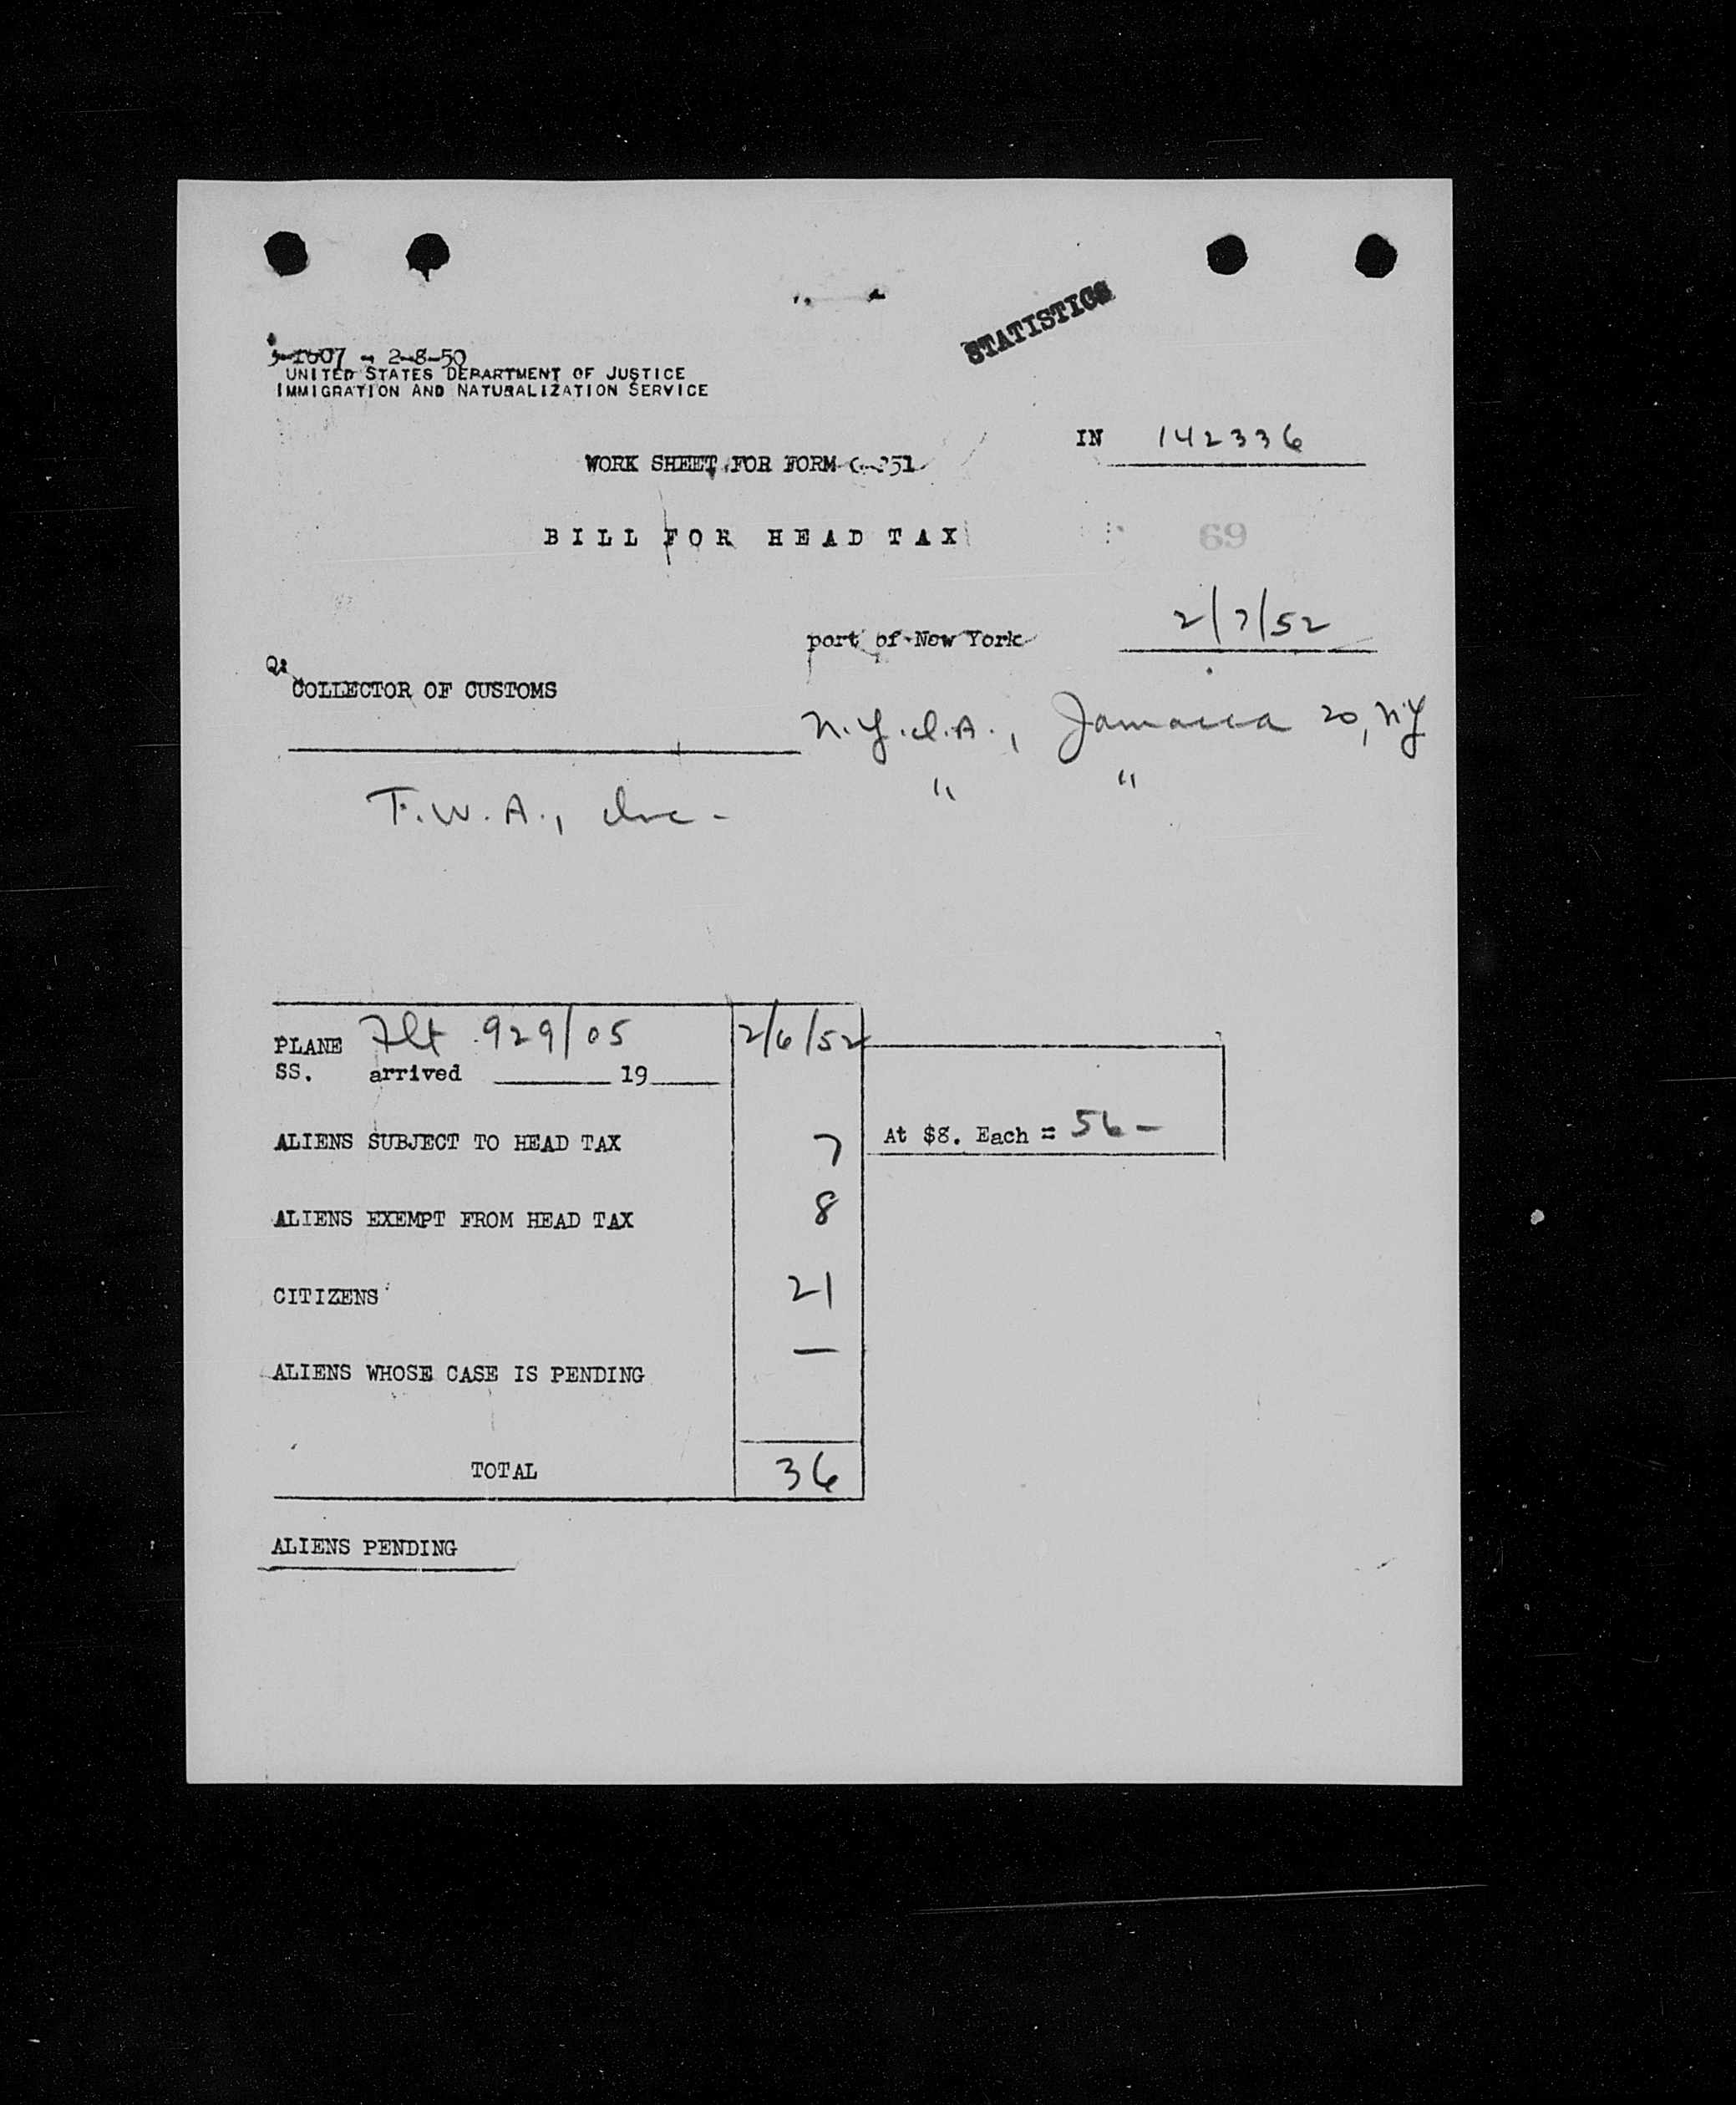 STATISTICS
3-1607 - 2-8-50
UNITED STATES DEPARTMENT OF JUSTICE
IMMIGRATION AND NATURALIZATION SERVICE
IN 142336
WORK SHEET FOR FORM
BILL FOR HEAD TAX
69
2/7/52
port of New York
COLLECTOR OF CUSTOMS
N.Y.I.A., Jamaica 20, NY
" "
T.W.A., Inc.
PLANE Flt 929/05 2/6/52
SS. arrived 19
ALIENS SUBJECT TO HEAD TAX 7 At $8. Each = 56-
ALIENS EXEMPT FROM HEAD TAX 8
CITIZENS 21
ALIENS WHOSE CASE IS PENDING —
TOTAL 36
ALIENS PENDING